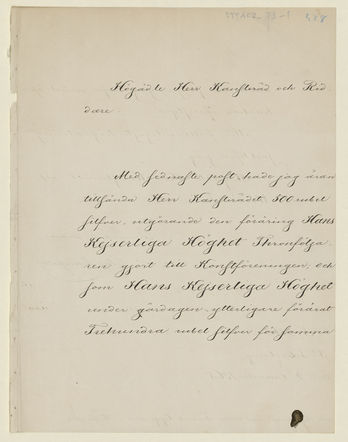 Högädle Herr Kansliråd och Rid
dare.
Med sednaste post, hade jag äran
tillsända Herr Kanslirådet 500 rubel
silfver, utgörande den föräring Hans
Kejserliga Höghet Thronfölja-
ren gjort till Konstföreningen; och
som Hans Kejserliga Höghet
under gårdagen ytterligare förärat
Trehundra rubel silfver för samma